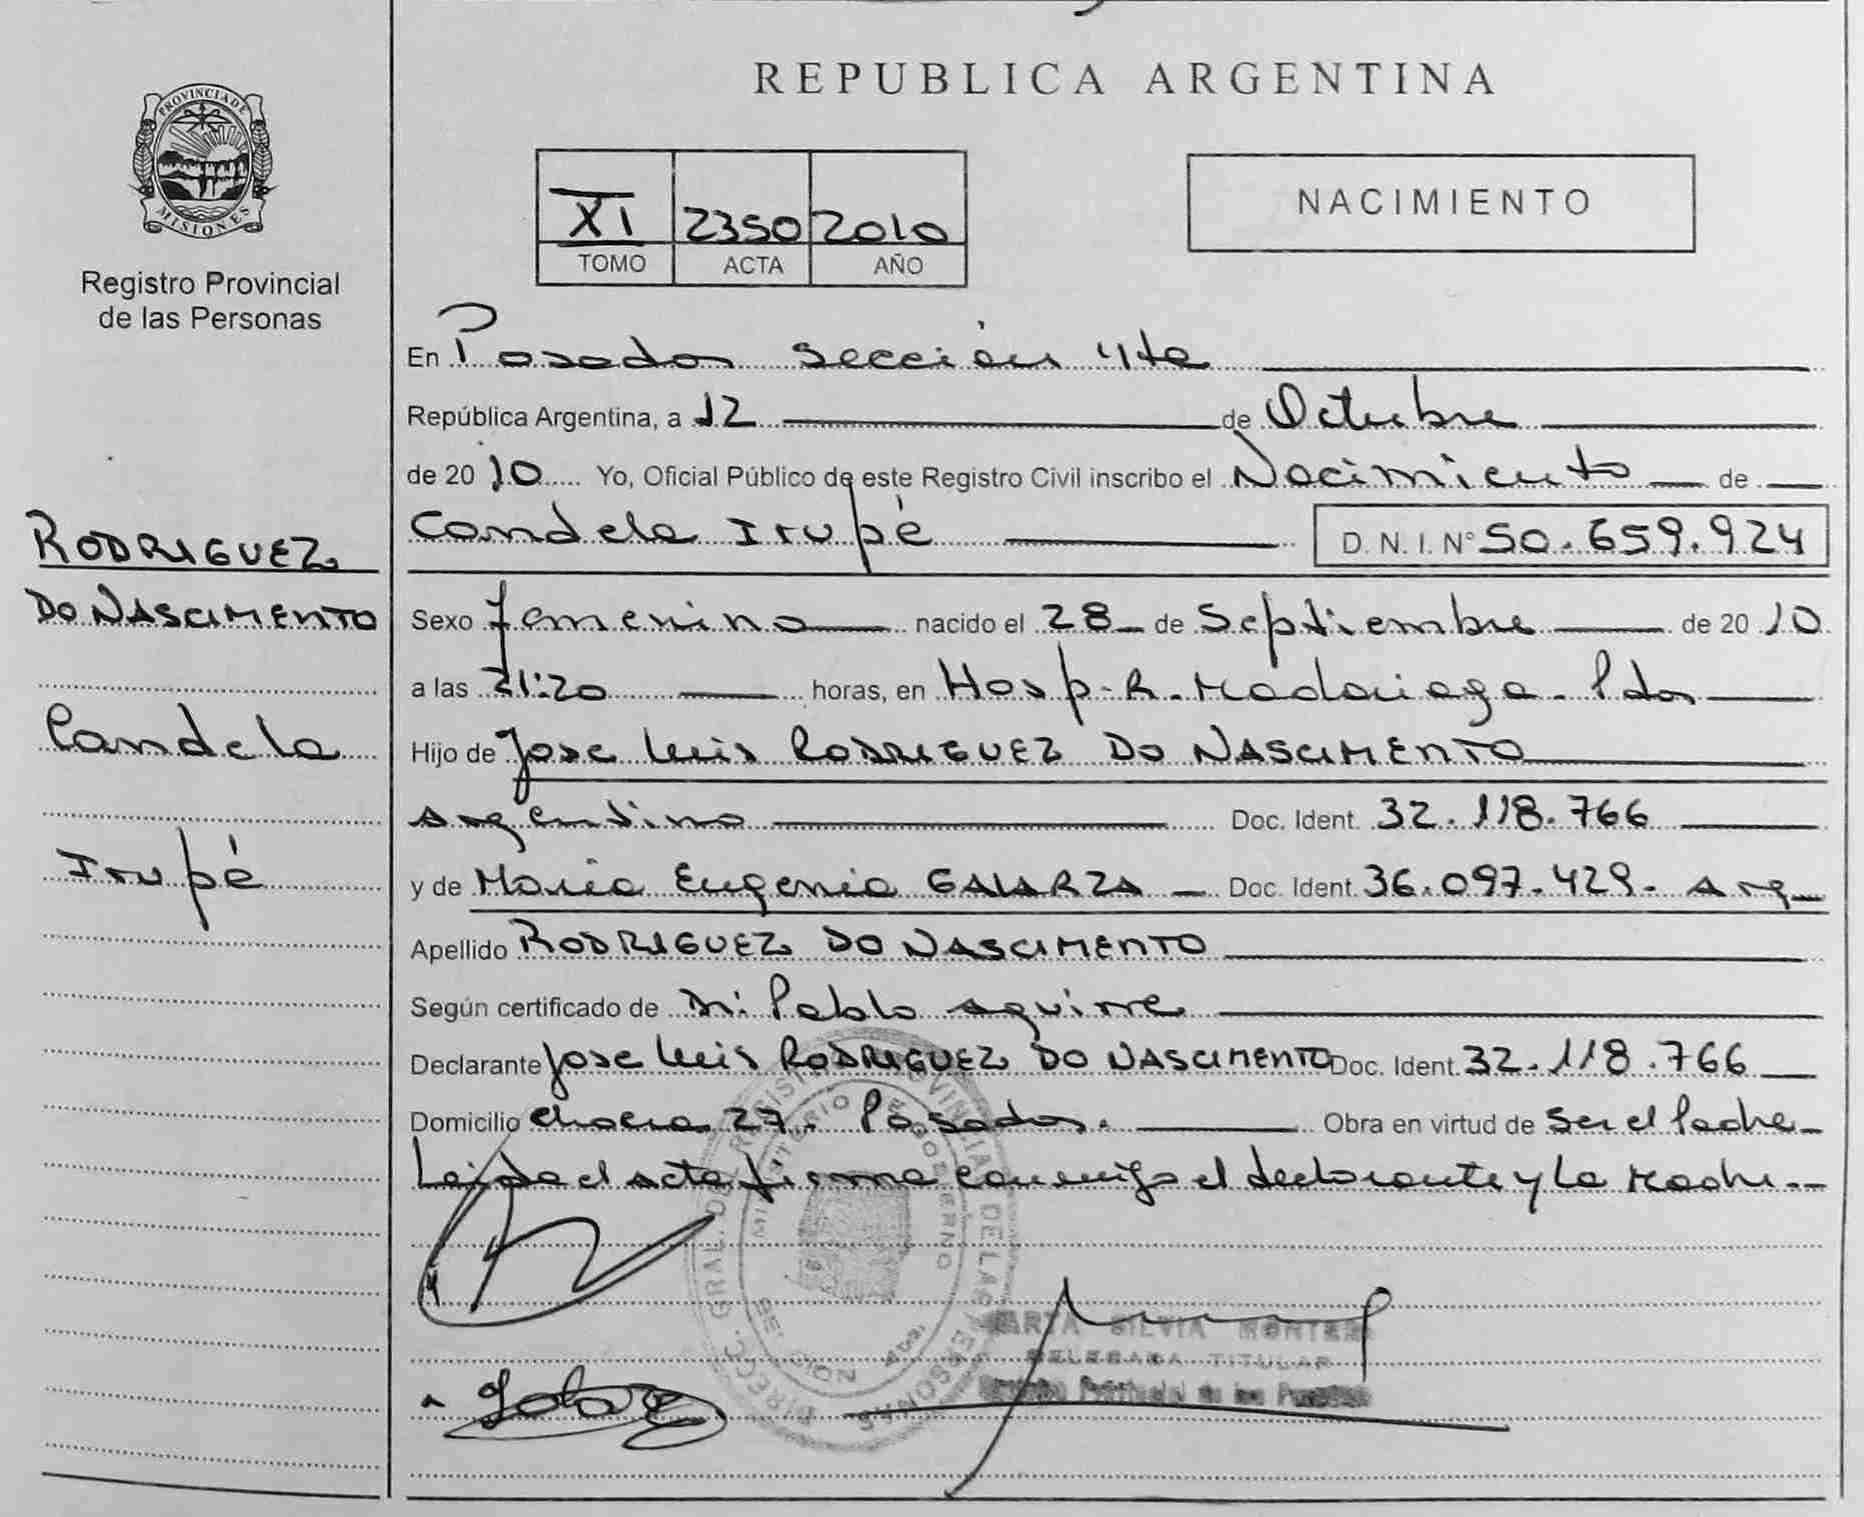 PROVINCIA DE
MISIONES
Registro Provincial
de las Personas
RODRIGUEZ
DO NASCIMENTO
Candela
Irupé
REPUBLICA ARGENTINA
XI 2350 2010
TOMO ACTA AÑO
NACIMIENTO
En Posadas sección 4ta
República Argentina, a 12 de Octubre
de 2010 Yo, Oficial Público de este Registro Civil inscribo el Nacimiento de
Candela Irupé D. N. I. N° 50.659.924
Sexo femenino nacido el 28 de Septiembre de 2010
a las 21:20 horas, en Hosp. R. Madariaga. Pdas
Hijo de Jose Luis RODRIGUEZ DO NASCIMENTO
Argentino Doc. Ident. 32.118.766
y de Maria Eugenia GALARZA Doc. Ident. 36.097.429. Arg
Apellido RODRIGUEZ DO NASCIMENTO
Según certificado de Dr: Pablo Aguirre
Declarante Jose Luis RODRIGUEZ DO NASCIMENTO Doc. Ident. 32.118.766
Domicilio Chacra 27. Posadas. Obra en virtud de ser el Padre
Leida el acta firma conmigo el declarante y la Madre
DELEGADA TITULAR